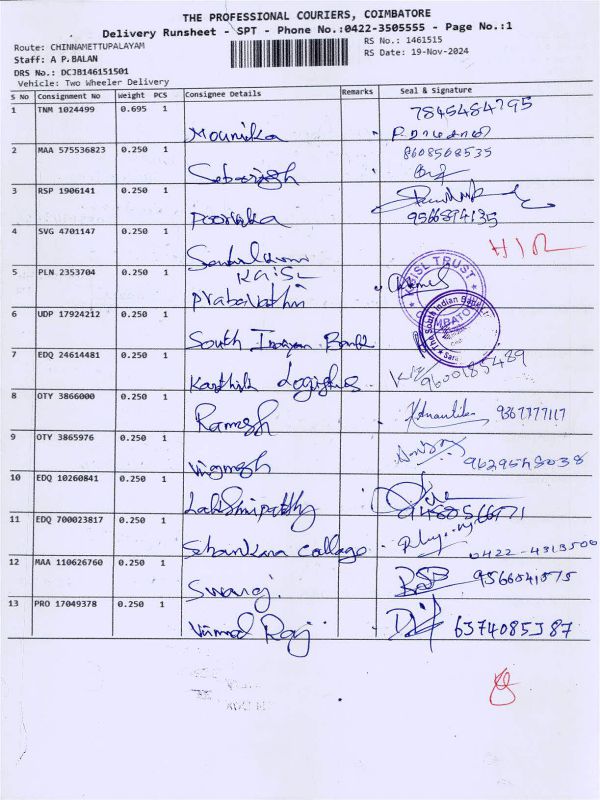 THE PROFESSIONAL COURIERS, COIMBATORE
Delivery Runsheet - SPT - Phone No.:0422-3505555 - Page No.:1
Route: CHINNAMETTUPALAYAM
RS No.: 1461515
Staff: A P.BALAN
RS Date: 19-Nov-2024
DRS No.: DCJB146151501
Vehicle: Two Wheeler Delivery
S No Consignment No Weight PCS Consignee Details Remarks Seal & Signature
1 TNM 1024499 0.695 1 Mounika 7845484795
2 MAA 575536823 0.250 1 8608568535
3 RSP 1906141 0.250 1 Poornika 9566894135
4 SVG 4701147 0.250 1
KGISL
KGISL TRUST
5 PLN 2353704 0.250 1 Prabavathi
6 UDP 17924212 0.250 1 South Indian Bank
The South Indian Bank
7 EDQ 24614481 0.250 1 Karthik Logistics 9600185489
8 OTY 3866000 0.250 1 Ramesh 9367777117
9 OTY 3865976 0.250 1 Vignesh 9629548038
10 EDQ 10260841 0.250 1 Lakshmipathy
11 EDQ 700023817 0.250 1 Sehankara College 0422-4313500
12 MAA 110626760 0.250 1 Swaraj. 9566041575
13 PRO 17049378 0.250 1 Vimal Raj 6374085387